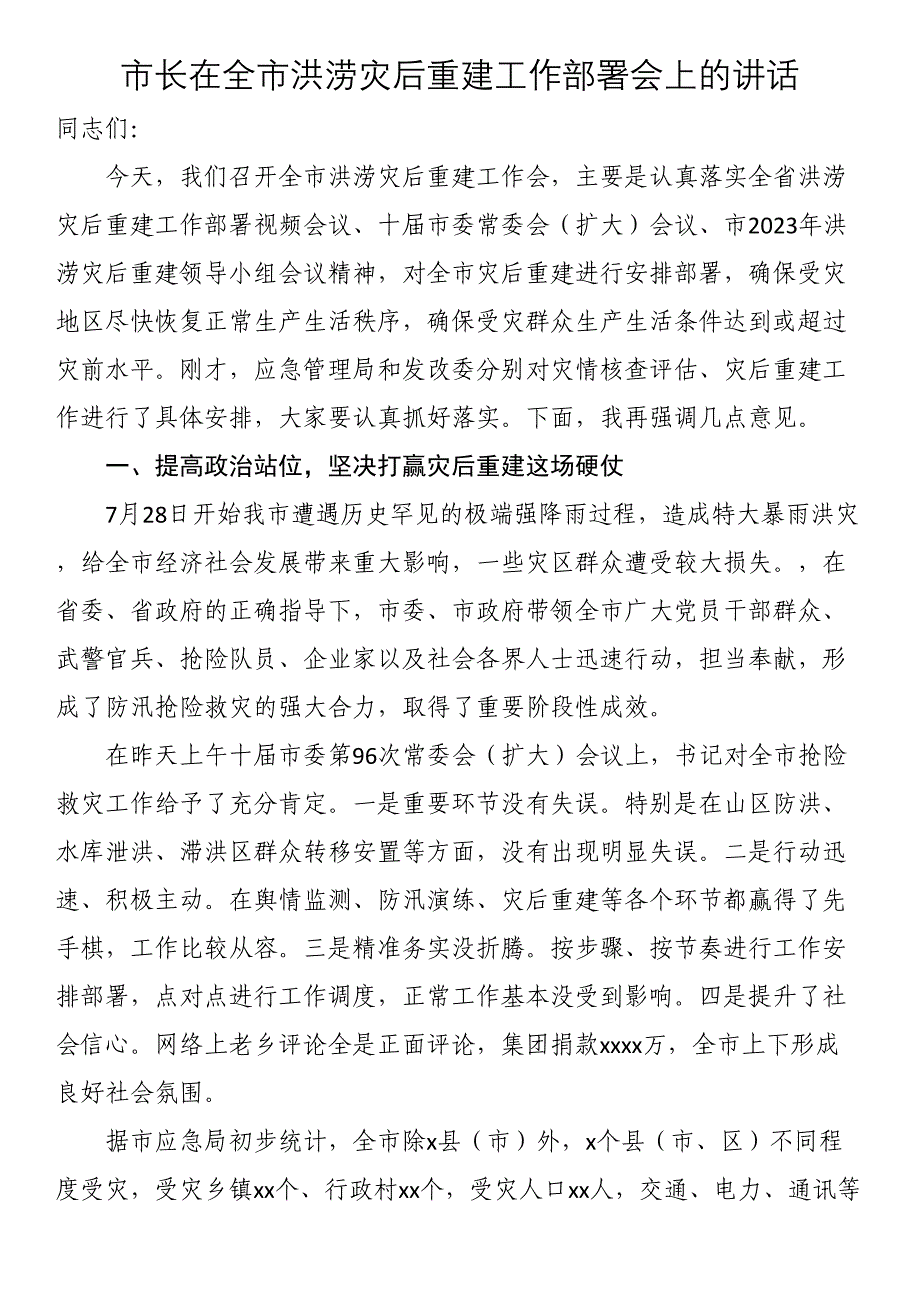 市长在全市洪涝灾后重建工作部署会上的讲话
同志们：
今天，我们召开全市洪涝灾后重建工作会，主要是认真落实全省洪涝
灾后重建工作部署视频会议、十届市委常委会（扩大）会议、市2023年洪
涝灾后重建领导小组会议精神，对全市灾后重建进行安排部署，确保受灾
地区尽快恢复正常生产生活秩序，确保受灾群众生产生活条件达到或超过
灾前水平。刚才，应急管理局和发改委分别对灾情核查评估、灾后重建工
作进行了具体安排，大家要认真抓好落实。下面，我再强调几点意见。
一、提高政治站位，坚决打赢灾后重建这场硬仗
7月28日开始我市遭遇历史罕见的极端强降雨过程，造成特大暴雨洪灾
，给全市经济社会发展带来重大影响，一些灾区群众遭受较大损失。，在
省委、省政府的正确指导下，市委、市政府带领全市广大党员干部群众、
武警官兵、抢险队员、企业家以及社会各界人士迅速行动，担当奉献，形
成了防汛抢险救灾的强大合力，取得了重要阶段性成效。
在昨天上午十届市委第96次常委会（扩大）会议上，书记对全市抢险
救灾工作给予了充分肯定。一是重要环节没有失误。特别是在山区防洪、
水库泄洪、滞洪区群众转移安置等方面，没有出现明显失误。二是行动迅
速、积极主动。在舆情监测、防汛演练、灾后重建等各个环节都赢得了先
手棋，工作比较从容。三是精准务实没折腾。按步骤、按节奏进行工作安
排部署，点对点进行工作调度，正常工作基本没受到影响。四是提升了社
会信心。网络上老乡评论全是正面评论，集团捐款xxxx万，全市上下形成
良好社会氛围。
据市应急局初步统计，全市除x县（市）外，x个县（市、区）不同程
度受灾，受灾乡镇xx个、行政村xx个，受灾人口xx人，交通、电力、通讯等